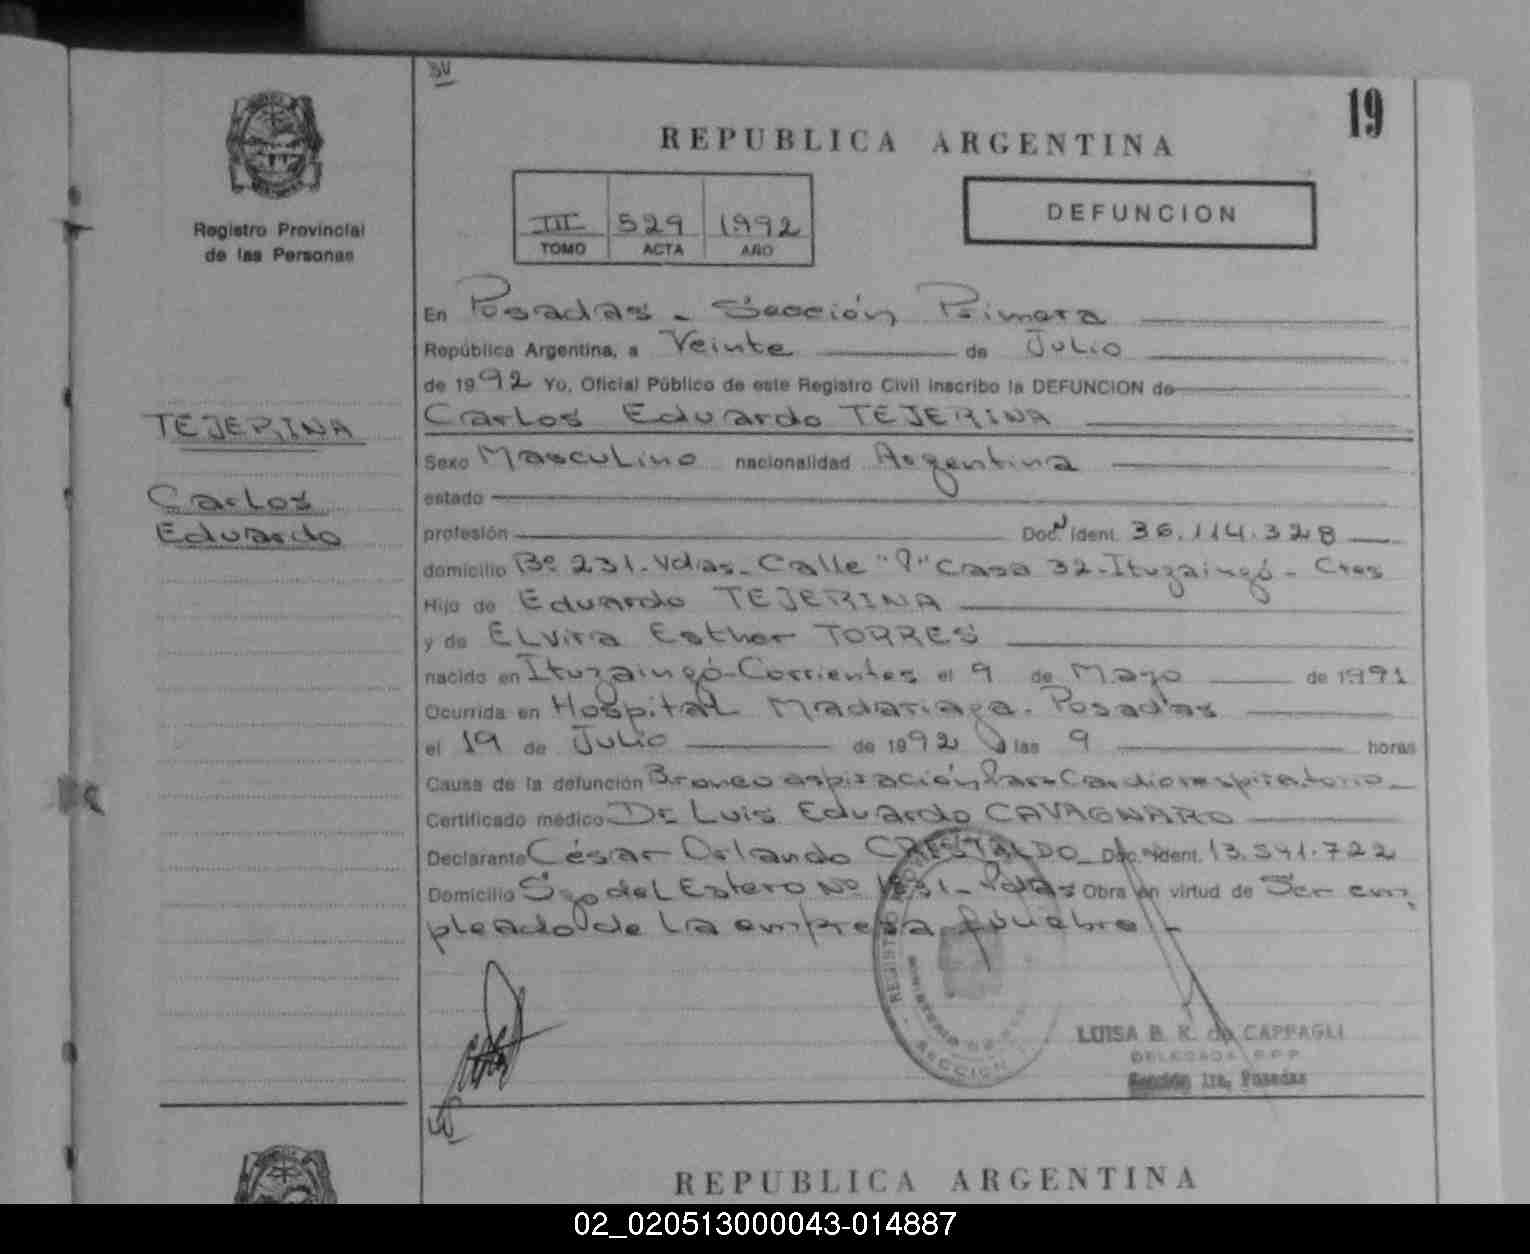 19
REPUBLICA ARGENTINA
Registro Provincial
de las Personas
III 529 1992
TOMO ACTA AÑO
DEFUNCION
En Posadas - Sección Primera
República Argentina, a Veinte de Julio
de 1992 Yo, Oficial Público de este Registro Civil inscribo la DEFUNCION de
Carlos Eduardo TEJERINA
TEJERINA
Carlos
Eduardo
Sexo Masculino nacionalidad Argentina
estado
profesión Doc. Ident. 36.114.328
domicilio Bº 231-Vdas-Calle "9" Casa 32-Ituzaingó-Ctes
Hijo de Eduardo TEJERINA
y de ELvira Esther TORRES
nacido en Ituzaingó-Corrientes el 9 de Mayo de 1991
Ocurrida en Hospital Madariaga. Posadas
el 19 de Julio de 1992 a las 9 horas
Causa de la defunción Bronco aspiración Paro Cardiorespiratorio-
Certificado médico Dr Luis Eduardo CAVAGNARO
Declarante César Orlando Doc. Ident. 13.541.722
Domicilio Sgo del Estero Nº Pdas Obra en virtud de Ser em
pleado de la empresa fúnebre -
REGISTRO
MINISTERIO DE
SECCION
LUISA B. K. de CAPPAGLI
DELEGADA R.P.P
Sección 1ra. Posadas
REPUBLICA ARGENTINA
02_020513000043-014887